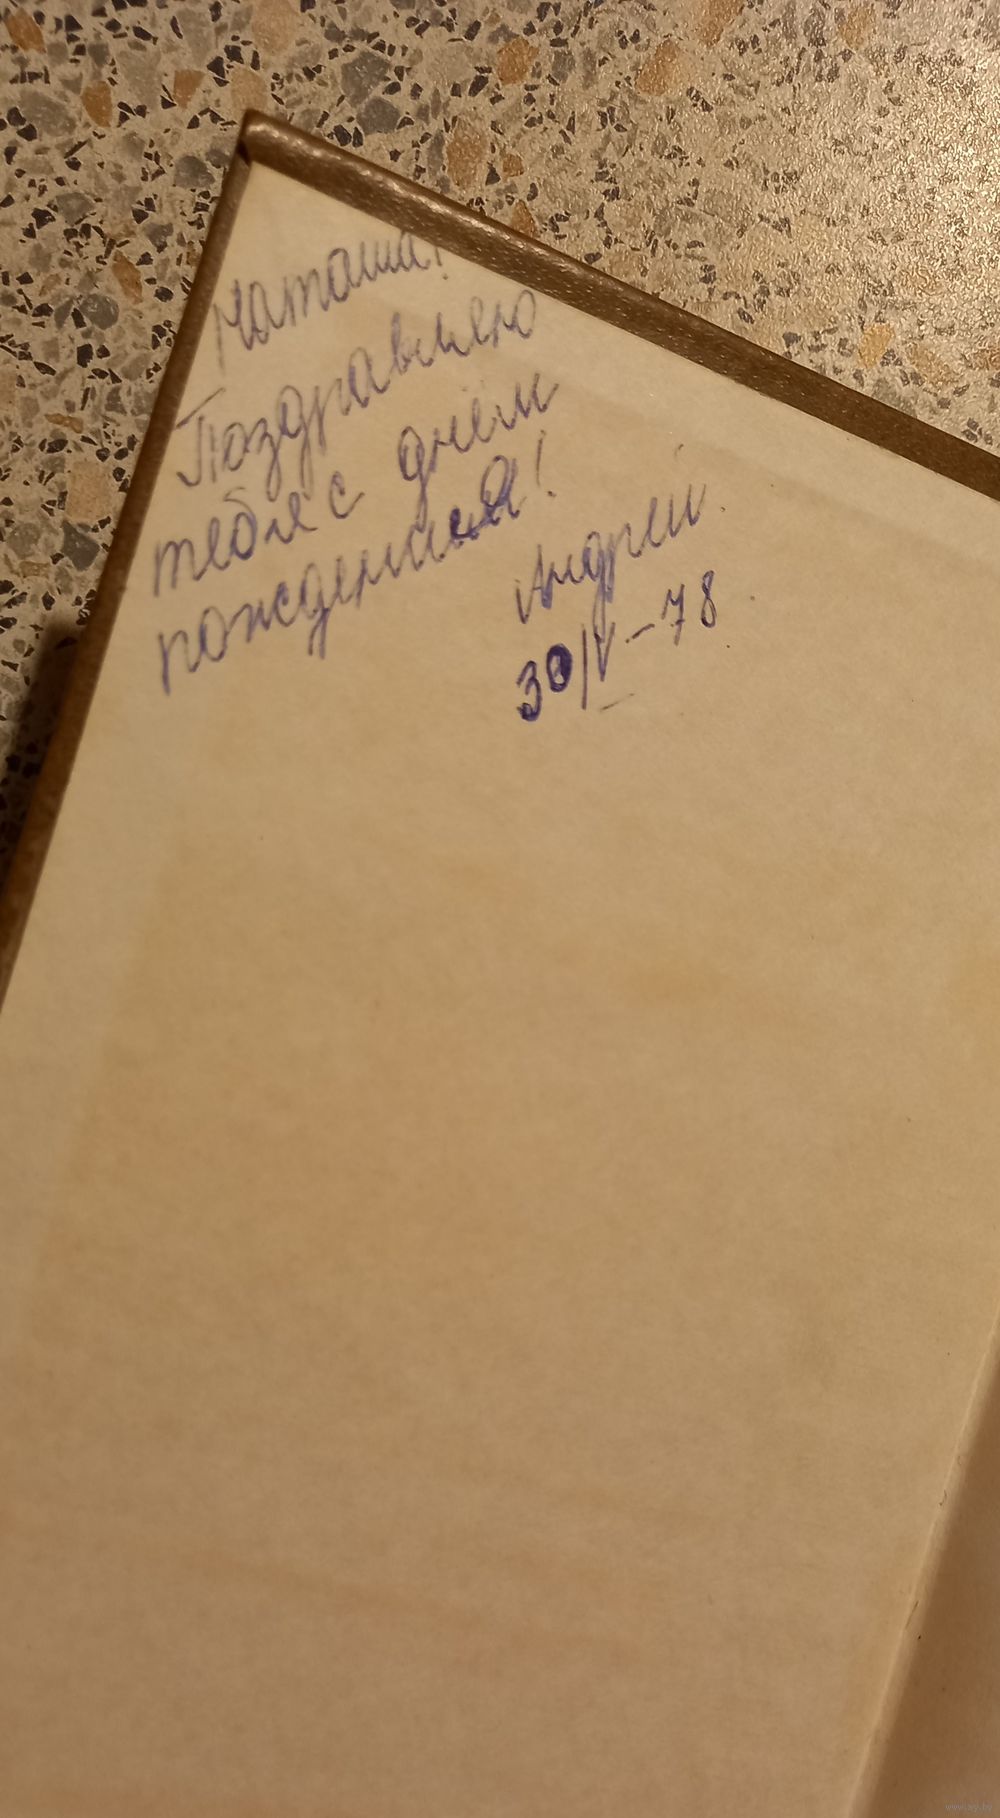 Наташа!
Поздравляю
тебя с днём
рождения!
Андрей.
30/V-78
www.ay.by